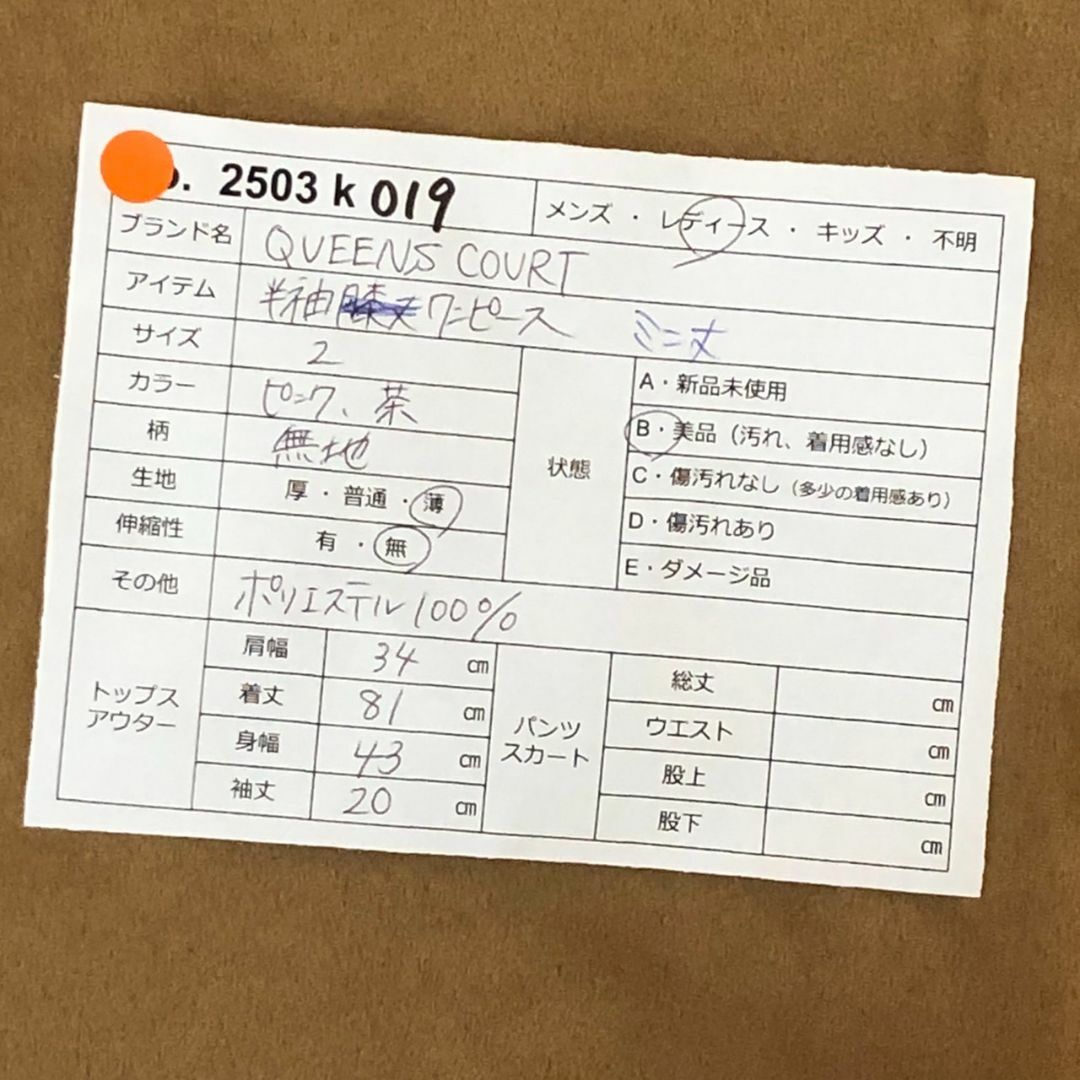 . 2503 k 019
メンズ ・ レディース ・ キッズ ・ 不明
ブランド名 QUEENS COURT
アイテム 半袖膝丈ワンピース ミニ丈
サイズ 2
カラー ピンク、茶
柄 無地
生地 厚・普通・薄
伸縮性 有・無
状態
A・新品未使用
B・美品（汚れ、着用感なし）
C・傷汚れなし（多少の着用感あり）
D・傷汚れあり
E・ダメージ品
その他 ポリエステル100%
トップス
アウター
肩幅 34 cm
着丈 81 cm
身幅 43 cm
袖丈 20 cm
パンツ
スカート
総丈 cm
ウエスト cm
股上 cm
股下 cm